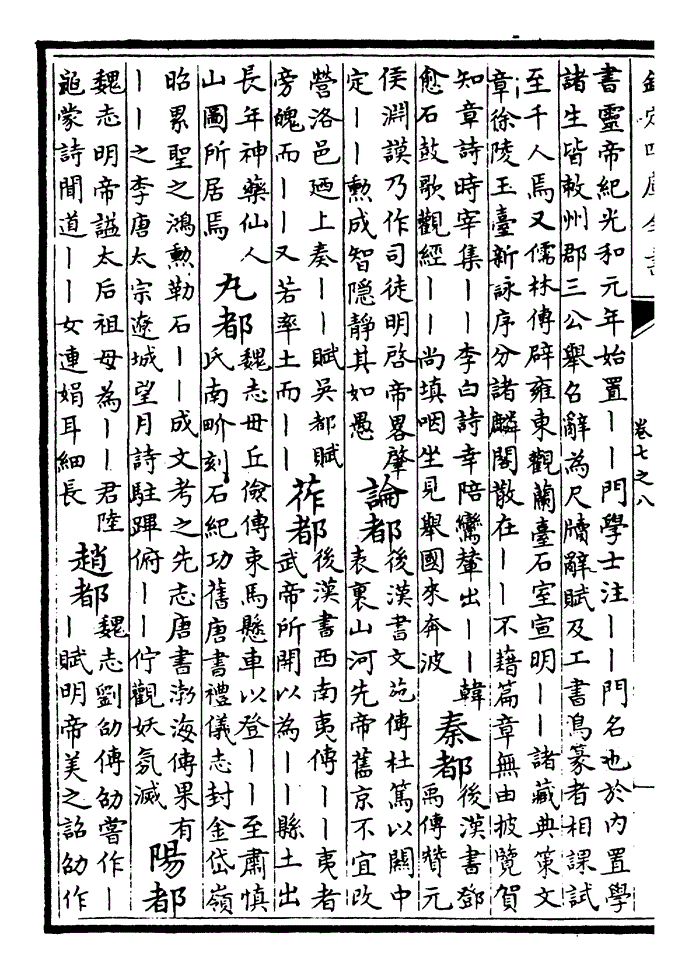 欽定四庫全書
卷七之八
書靈帝紀光和元年始置｜｜門學士注｜｜門名也於内置學
諸生皆敕州郡三公舉召辭為尺牘辭賦及工書鳥篆者相課試
至千人焉又儒林傳辟雍東觀蘭臺石室宣明｜｜諸藏典策文
章徐陵玉臺新詠序分諸麟閣散在｜｜不藉篇章無由披覽賀
知章詩時宰集｜｜李白詩幸陪鸞輦出｜｜韓
愈石鼓歌觀經｜｜尚填咽坐見舉國來奔波
秦都
後漢書鄧
禹傳贊元
侯淵謨乃作司徒明啓帝畧肇
定｜｜勲成智隐静其如愚
論都
後漢書文苑傳杜篤以關中
表裏山河先帝舊京不宜改
營洛邑廼上奏｜｜賦吳都賦
旁魄而｜｜又若率土而｜｜
莋都
後漢書西南夷傳｜｜夷者
武帝所開以為｜｜縣土出
長年神藥仙人
山圖所居焉
丸都
魏志毋丘儉傳束馬懸車以登｜｜至肅慎
氏南畍刻石紀功舊唐書禮儀志封金岱嶺
昭累聖之鴻勲勒石｜｜成文考之先志唐書渤海傳果有
｜｜之李唐太宗遼城望月詩駐蹕俯｜｜佇觀妖氛滅
陽都
魏志明帝謚太后祖母為｜｜君陸
龜蒙詩聞道｜｜女連娟耳細長
趙都
魏志劉劭傳劭嘗作｜
｜賦明帝美之詔劭作